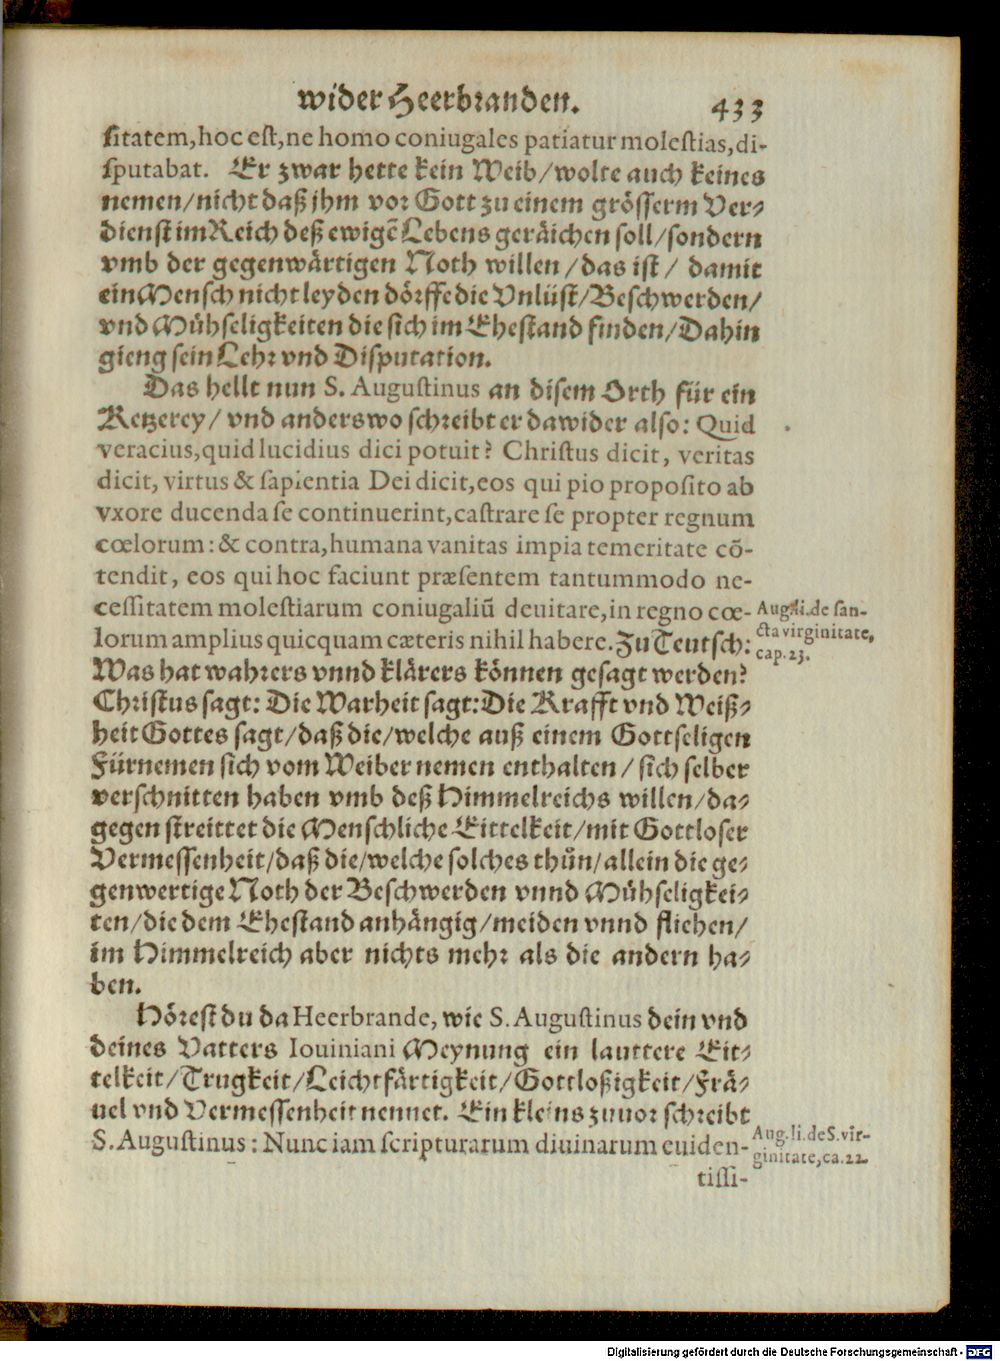 wider Heerbranden. 433
sitatem, hoc est, ne homo coniugales patiatur molestias, di-
sputabat. Er zwar hette kein Weib/wolte auch keines
nemen/nicht daß jhm vor Gott zu einem grösserm Ver-
dienst im Reich deß ewigẽ Lebens geräichen soll/sondern
vmb der gegenwärtigen Noth willen/das ist/ damit
ein Mensch nicht leyden dörffe die Vnlüst/Beschwerden/
vnd Mühseligkeiten die sich im Ehestand finden/Dahin
gieng sein Lehr vnd Disputation.
Das hellt nun S. Augustinus an disem Orth für ein
Ketzerey/ vnd anderswo schreibt er dawider also: Quid
veracius, quid lucidius dici potuit? Christus dicit, veritas
dicit, virtus & sapientia Dei dicit, eos qui pio proposito ab
vxore ducenda se continuerint, castrare se propter regnum
cœlorum: & contra, humana vanitas impia temeritate cõ-
tendit, eos qui hoc faciunt præsentem tantummodo ne-
cessitatem molestiarum coniugaliũ deuitare, in regno cœ-
lorum amplius quicquam cæteris nihil habere. Zu Teutsch:
Aug. li. de san-
cta virginitate,
cap. 23.
Was hat wahrers vnnd klärers können gesagt werden?
Christus sagt: Die Warheit sagt: Die Krafft vnd Weiß-
heit Gottes sagt/daß die/welche auß einem Gottseligen
Fürnemen sich vom Weiber nemen enthalten/ sich selber
verschnitten haben vmb deß Himmelreichs willen/da-
gegen streittet die Menschliche Eittelkeit/mit Gottloser
Vermessenheit/daß die/welche solches thůn/allein die ge-
genwertige Noth der Beschwerden vnnd Mühseligkei-
ten/die dem Ehestand anhängig/meiden vnnd fliehen/
im Himmelreich aber nichts mehr als die andern ha-
ben.
Hörest du da Heerbrande, wie S. Augustinus dein vnd
deines Vatters Iouiniani Meynung ein lauttere Eit-
telkeit/Trugkeit/Leichtfärtigkeit/Gottloßigkeit/Frä-
uel vnd Vermessenheit nennet. Ein kleins zuuor schreibt
S. Augustinus: Nunc iam scripturarum diuinarum euiden-
Aug. li. de S. vir-
ginitate, ca. 22.
tissi-
Digitalisierung gefördert durch die Deutsche Forschungsgemeinschaft - DFG